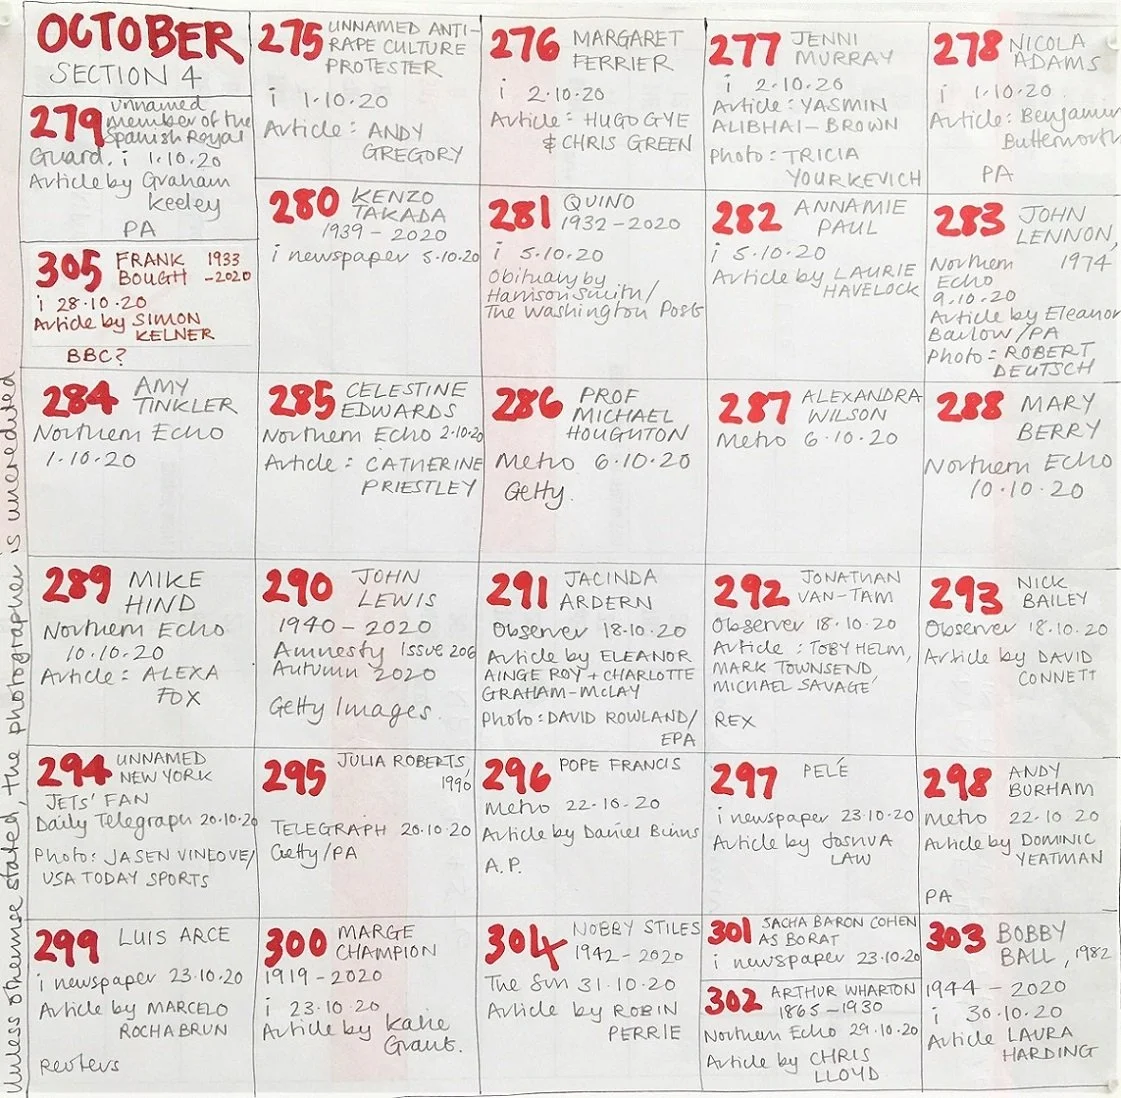 OCTOBER
SECTION 4
275 UNNAMED ANTI-
RAPE CULTURE
PROTESTER
i 1.10.20
Article: ANDY
GREGORY
276 MARGARET
FERRIER
i 2.10.20
Article: HUGO GYE
& CHRIS GREEN
277 JENNI
MURRAY
i 2.10.20
Article: YASMIN
ALIBHAI-BROWN
Photo: TRICIA
YOURKEVICH
278 NICOLA
ADAMS
i 1.10.20
Article: Benjamin
Butterworth
PA
279 unnamed
member of the
Spanish Royal
Guard. i 1.10.20
Article by Graham
Keeley
PA
305 FRANK 1933
BOUGH -2020
i 28.10.20
Article by SIMON
KELNER
BBC?
280 KENZO
TAKADA
1939-2020
i newspaper 5.10.20
281 QUINO
1932-2020
i 5.10.20
Obituary by
Harrison Smith/
The Washington Post
282 ANNAMIE
PAUL
i 5.10.20
Article by LAURIE
HAVELOCK
283 JOHN
LENNON,
Northern 1974
Echo
9.10.20
Article by Eleanor
Barlow/PA
Photo: ROBERT
DEUTSCH
284 AMY
TINKLER
Northern Echo
1.10.20
285 CELESTINE
EDWARDS
Northern Echo 2.10.20
Article: CATHERINE
PRIESTLEY
286 PROF
MICHAEL
HOUGHTON
Metro 6.10.20
Getty.
287 ALEXANDRA
WILSON
Metro 6.10.20
288 MARY
BERRY
Northern Echo
10.10.20
289 MIKE
HIND
Northern Echo
10.10.20
Article: ALEXA
FOX
290 JOHN
LEWIS
1940-2020
Amnesty Issue 206
Autumn 2020
Getty Images.
291 JACINDA
ARDERN
Observer 18.10.20
Article by ELEANOR
AINGE ROY + CHARLOTTE
GRAHAM-McLAY
Photo: DAVID ROWLAND/
EPA
292 JONATHAN
VAN-TAM
Observer 18.10.20
Article: TOBY HELM,
MARK TOWNSEND,
MICHAEL SAVAGE
REX
293 NICK
BAILEY
Observer 18.10.20
Article by DAVID
CONNETT
294 UNNAMED
NEW YORK
JETS' FAN
Daily Telegraph 20.10.20
Photo: JASEN VINLOVE/
USA TODAY SPORTS
295 JULIA ROBERTS,
1990
TELEGRAPH 20.10.20
Getty/PA
296 POPE FRANCIS
Metro 22.10.20
Article by Daniel Binns
A.P.
297 PELÉ
i newspaper 23.10.20
Article by Joshua
LAW
298 ANDY
BURHAM
Metro 22.10 20
Article by DOMINIC
YEATMAN
PA
299 LUIS ARCE
i newspaper 23.10.20
Article by MARCELO
ROCHABRUN
Reuters
300 MARGE
CHAMPION
1919-2020
i 23.10.20
Article by Katie
Grant.
304 NOBBY STILES
1942-2020
The Sun 31.10.20
Article by ROBIN
PERRIE
301 SACHA BARON COHEN
AS BORAT
i newspaper 23.10.20
302 ARTHUR WHARTON
1865-1930
Northern Echo 29.10.20
Article by CHRIS
LLOYD
303 BOBBY
BALL, 1982
1944-2020
i 30.10.20
Article LAURA
HARDING
Unless otherwise stated, the photographer is uncredited